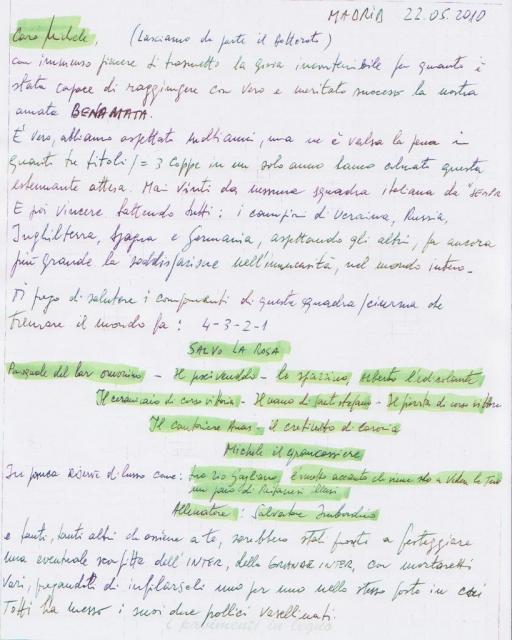 MADRID 22.05.2010
Caro Michele, (Lasciamo da parte il
con immenso piacere ti trasmetto la gioia incontenibile per quanto è
stata capace di raggiungere con vero e meritato successo la nostra
amata BENAMATA.
E' vero, abbiamo aspettato molti anni, ma ne è valsa la pena in
quanto tre titoli / = 3 Coppe in un solo anno hanno colmato questa
estenuante attesa. Mai vinti da nessuna squadra italiana da "SEMPR
E poi vincere battendo tutti: i campioni di Ucraina, Russia,
Inghilterra, Spagna e Germania, aspettando gli altri, fa ancora
più grande la soddisfazione nell'immensità, nel mondo intero.
Ti prego di salutare i componenti di questa squadra/ciurma che
tremare il mondo fa: 4-3-2-1
SALVO LA ROSA
Pasquale del bar omonimo - Il pescivendolo - lo spazzino, Alberto l'edicolante
Il ceramiano di corso vittoria - Il nano di santo stefano - Il pirata di corso vittoria
Il cantoniere Anas - il cretinetto di
Michele il grancassiere
In panca riserve di lusso come: tuo zio Gaetano, è molto accanto che viene sto a
un paio di
Allenatore: Salvatore
e tanti, tanti altri che assieme a te, sarebbero stati pronti a festeggiare
una eventuale sconfitta dell'INTER, della GRANDE INTER, con mortaretti
vari, pregandoti di infilarseli uno per uno nello stesso posto in cui
Totti ha messo i suoi due pollici vasellinati.